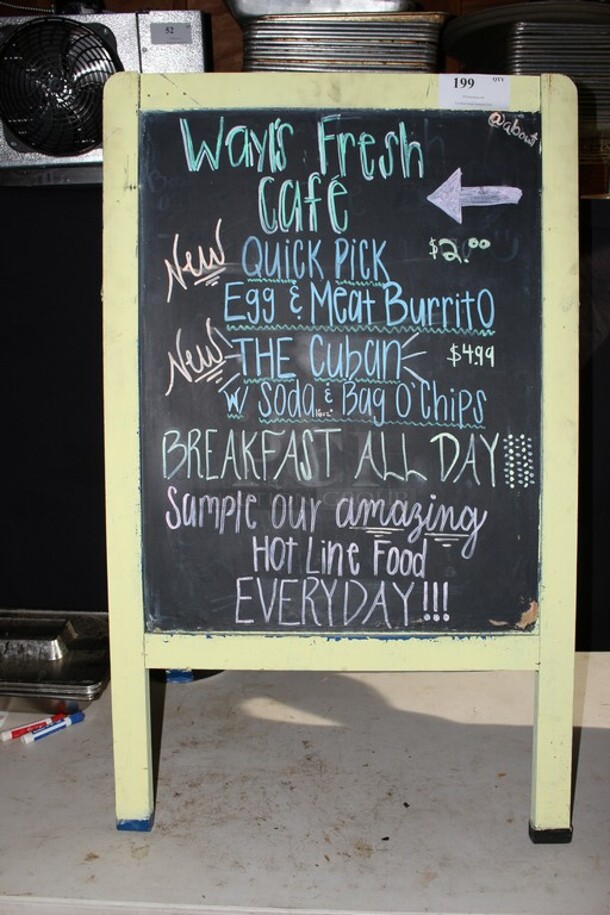 52
199 QTY
@about
Wayl's Fresh
Café
New QUICK PICK $2.00
Egg & Meat Burrito
New THE Cuban $4.99
W/ Soda & Bag O' Chips
BREAKFAST ALL DAY!!!
Sample our amazing
Hot Line Food
EVERYDAY!!!